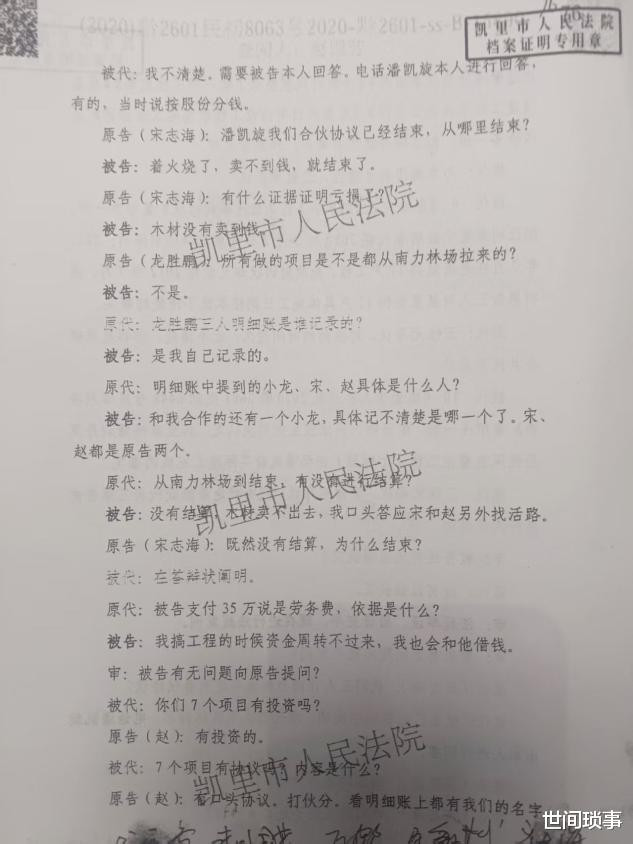 (2020)黔2601民初8063号2020-黔2601-ss-B
凯里市人民法院
档案证明专用章
被代：我不清楚。需要被告本人回答。电话潘凯旋本人进行回答，
有的，当时说按股份分钱。
原告（宋志海）：潘凯旋我们合伙协议已经结束，从哪里结束？
被告：着火烧了，卖不到钱，就结束了。
原告（宋志海）：有什么证据证明亏损了？
被告：木材没有卖到钱
凯里市人民法院
原告（龙胜鹏）：所有做的项目是不是都从南力林场拉来的？
被告：不是。
原代：龙胜鹏三人明细账是谁记录的？
被告：是我自己记录的。
原代：明细账中提到的小龙、宋、赵具体是什么人？
被告：和我合作的还有一个小龙，具体记不清楚是哪一个了。宋、
赵都是原告两个。
原代：从南力林场到结束，有没有进行结算？
凯里市人民法院
被告：没有结算，木材卖不出去，我口头答应宋和赵另外找活路。
原告（宋志海）：既然没有结算，为什么结束？
被代：在答辩状阐明。
原代：被告支付35万说是劳务费，依据是什么？
被告：我搞工程的时候资金周转不过来，我也会和他借钱。
审：被告有无问题向原告提问？
被代：你们7个项目有投资吗？
原告（赵）：有投资的。
凯里市人民法院
被代：7个项目有协议吗？内容是什么？
原告（赵）：有口头协议。打伙分。看明细账上都有我们的名字
世间琐事